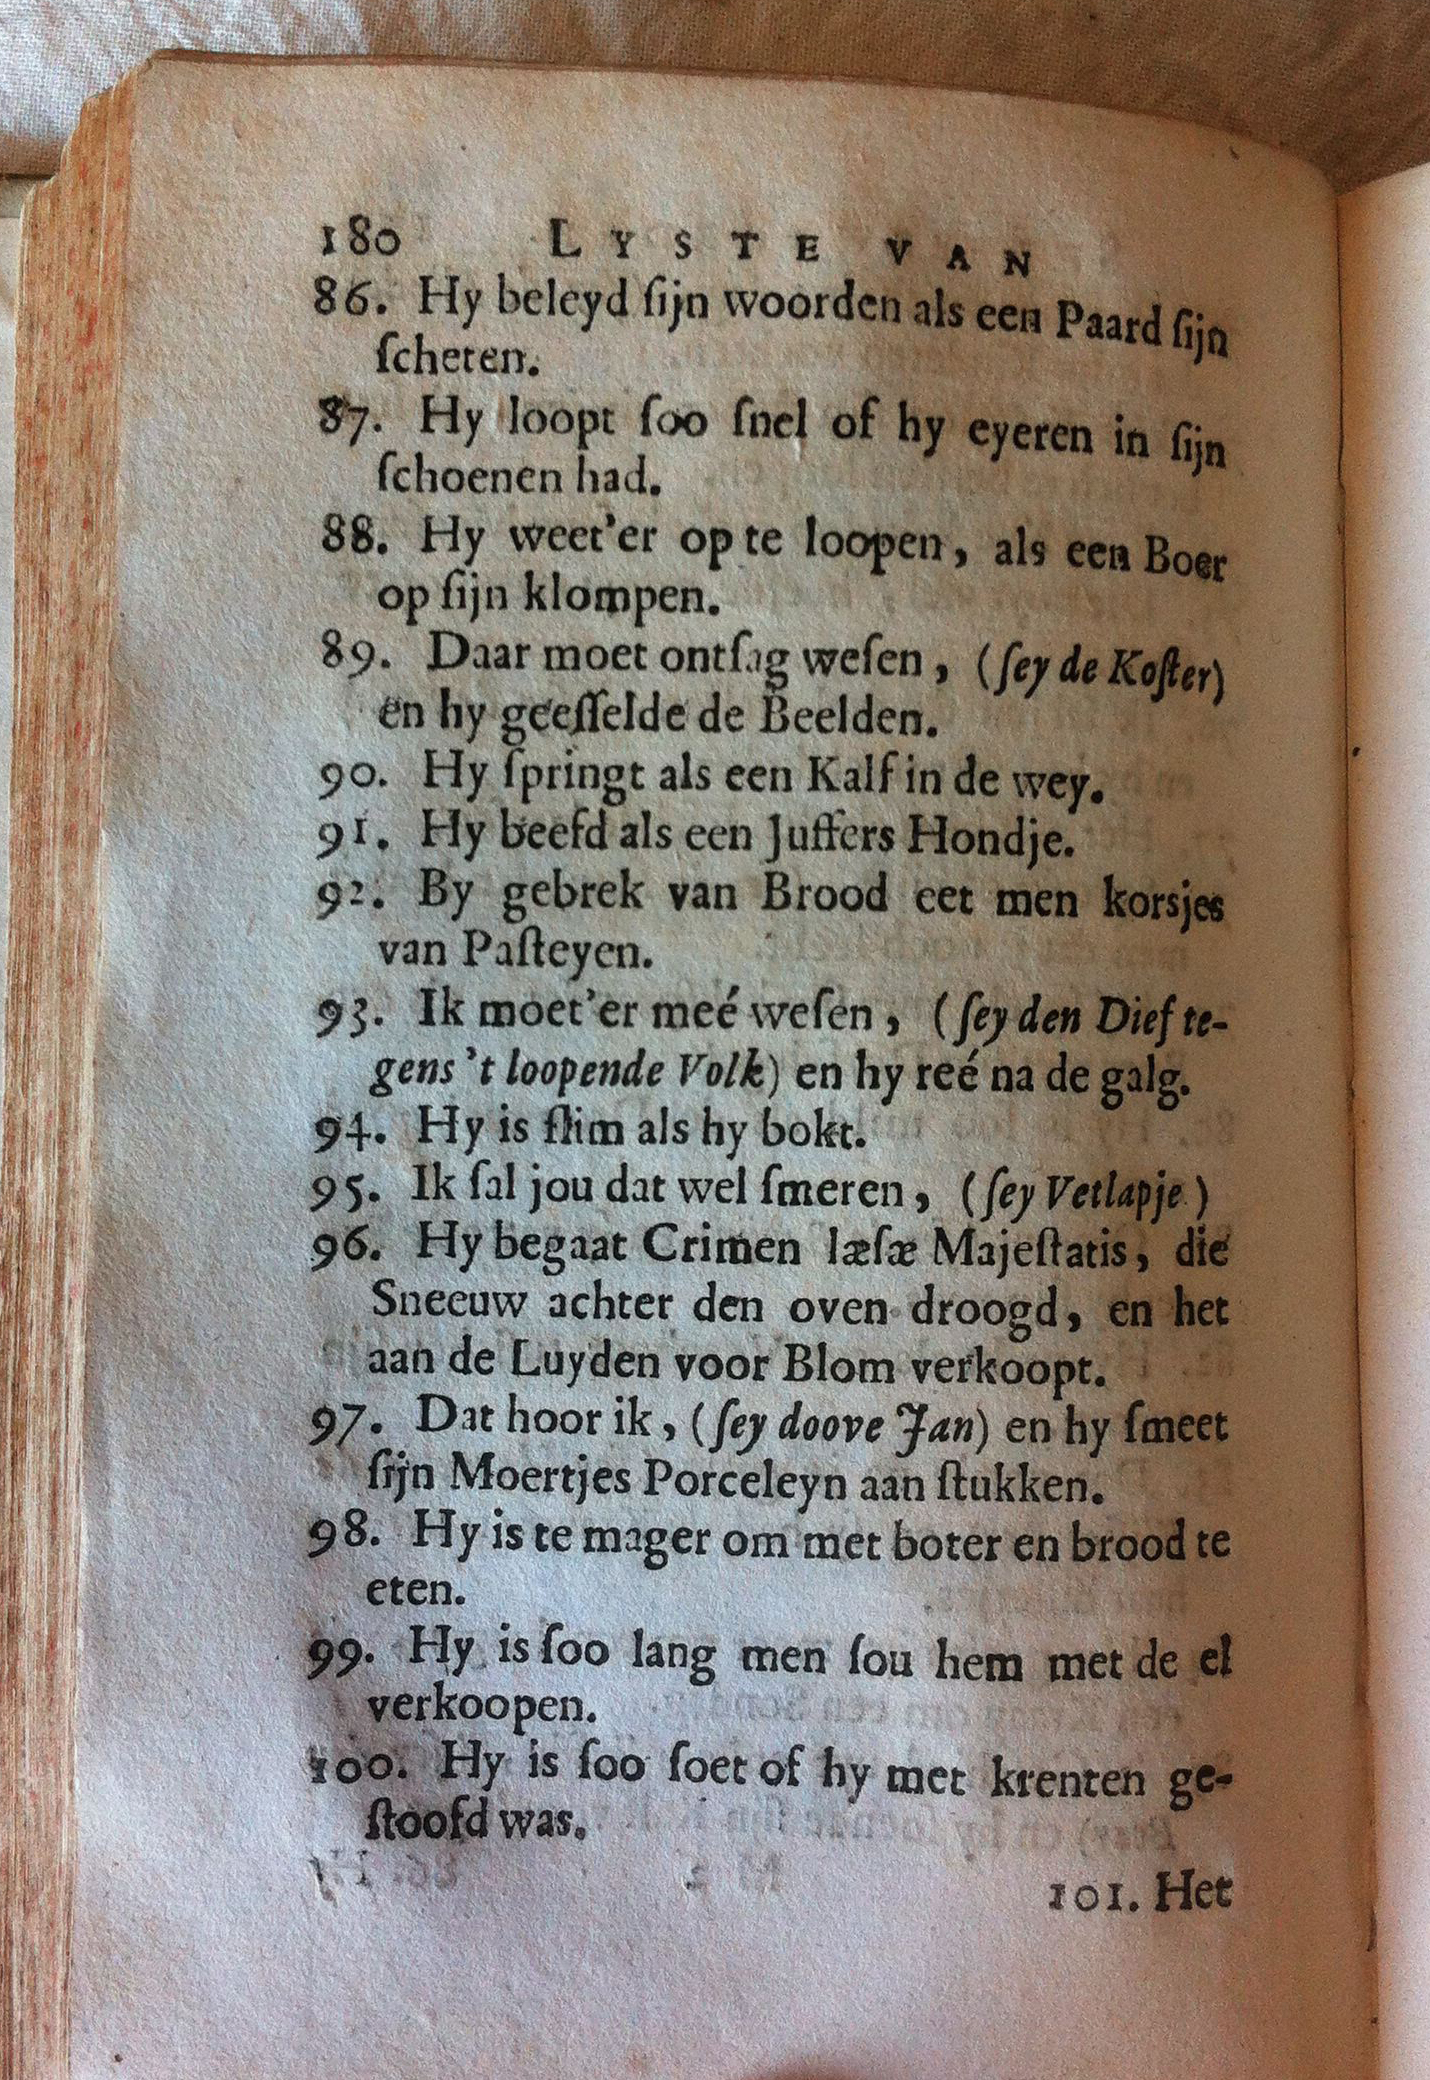 180 LYSTE VAN
86. Hy beleyd ſijn woorden als een Paard ſijn
ſcheten.
87. Hy loopt ſoo ſnel of hy eyeren in ſijn
ſchoenen had.
88. Hy weet'er op te loopen, als een Boer
op ſijn klompen.
89. Daar moet ontſag weſen, (ſey de Koſter)
en hy geeſſelde de Beelden.
90. Hy ſpringt als een Kalf in de wey.
91. Hy beefd als een Juffers Hondje.
92. By gebrek van Brood eet men korsjes
van Paſteyen.
93. Ik moet'er meé weſen, (ſey den Dief te-
gens 't loopende Volk) en hy reé na de galg.
94. Hy is ſlim als hy bokt.
95. Ik ſal jou dat wel ſmeren, (ſey Vetlapje)
96. Hy begaat Crimen læſæ Majeſtatis, die
Sneeuw achter den oven droogd, en het
aan de Luyden voor Blom verkoopt.
97. Dat hoor ik, (ſey doove Jan) en hy ſmeet
ſijn Moertjes Porceleyn aan ſtukken.
98. Hy is te mager om met boter en brood te
eten.
99. Hy is ſoo lang men ſou hem met de el
verkoopen.
100. Hy is ſoo ſoet of hy met krenten ge-
ſtoofd was.
101. Het